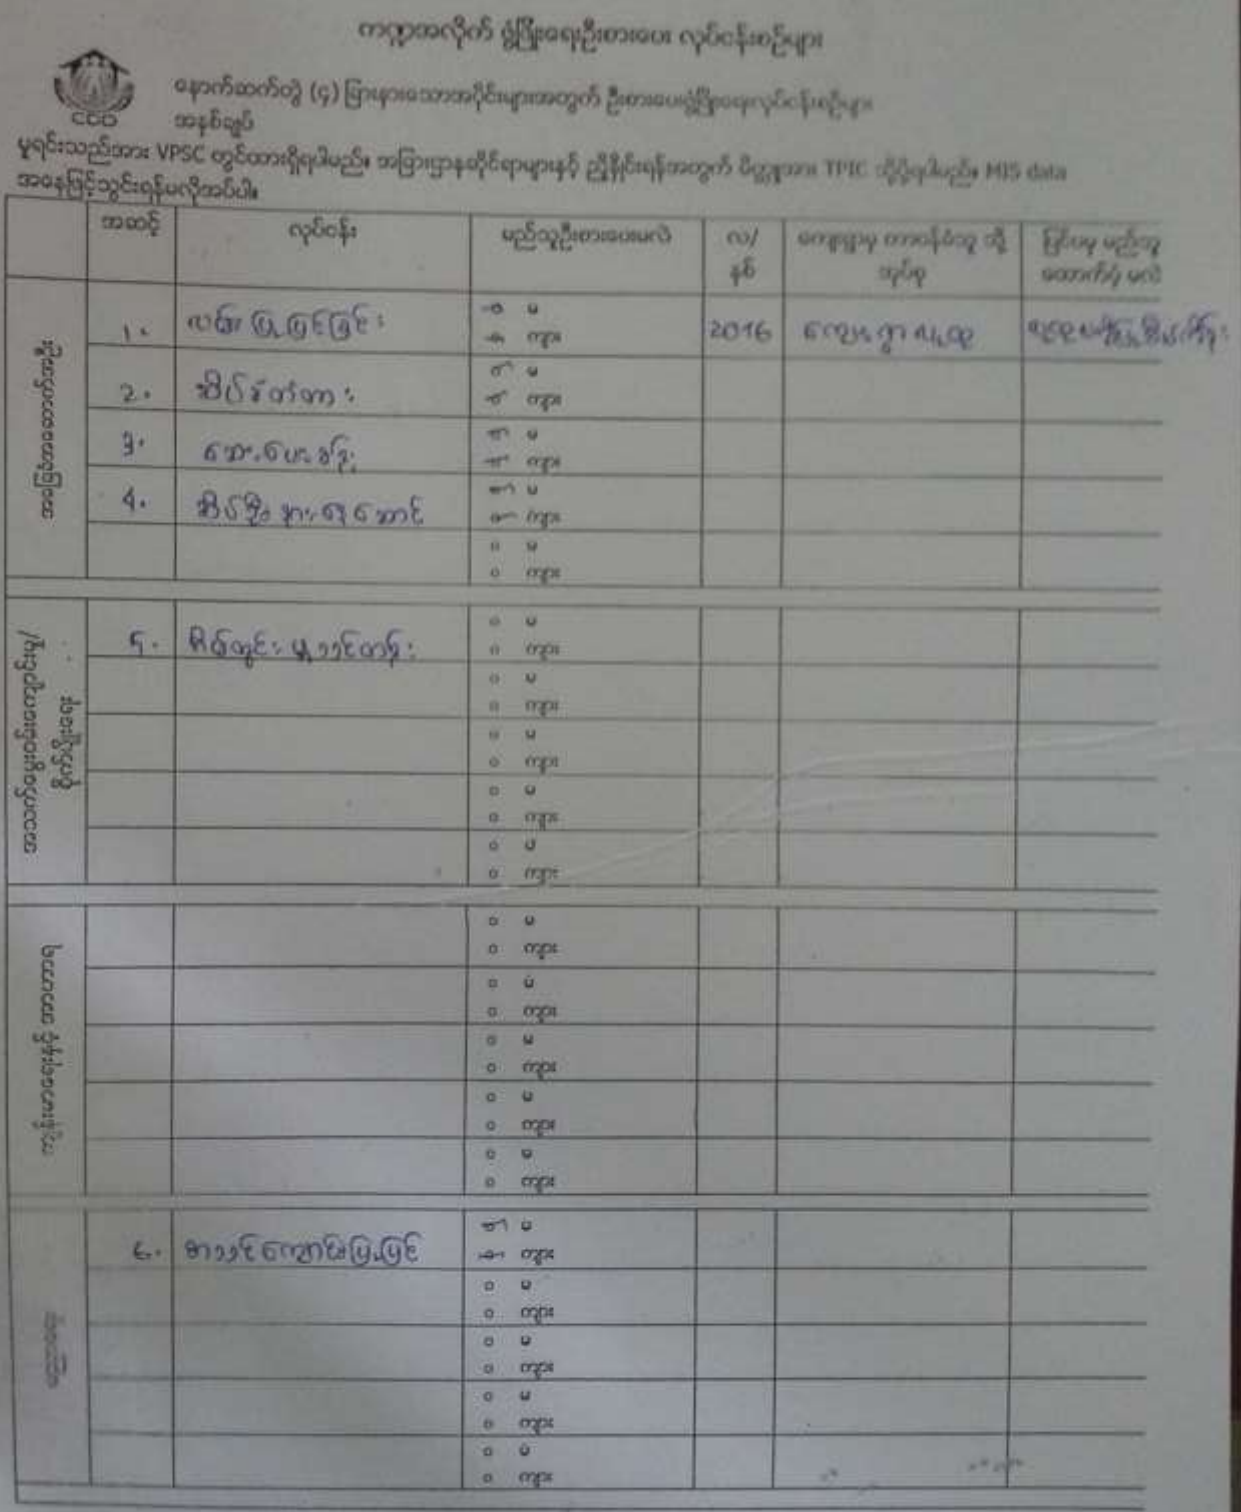 ကဏ္ဍအလိုက် ဖွံ့ဖြိုးရေးဦးစားပေး လုပ်ငန်းစဉ်များ
နောက်ဆက်တွဲ (၄) ခြားနားသောအပိုင်းများအတွက် ဦးစားပေးဖွံ့ဖြိုးရေးလုပ်ငန်းစဉ်များ
CDD အနှစ်ချုပ်
မူရင်းသည်အား VPSC တွင်ထားရှိရပါမည်။ အခြားဌာနဆိုင်ရာများနှင့် ညှိနှိုင်းရန်အတွက် မိတ္တူအား TPIC သို့ပို့ရပါမည်။ MIS data
အနေဖြင့်သွင်းရန်မလိုအပ်ပါ။
အဆင့် လုပ်ငန်း မည်သူဦးစားပေးမလဲ လ/ ကျေးရွာမှ တာဝန်ခံသူ သို့ ပြင်ပမှ မည်သူ
နှစ် အုပ်စု ထောက်ပံ့ မလဲ
အခြေခံအဆောက်အဦး
၁. လမ်း ပြုပြင်ခြင်း မ
ကျား 2016 ကျေးရွာလူထု
၂. မ
ကျား
၃. ဆေးပေးခန်း မ
ကျား
၄. မ
ကျား
မ
ကျား
၅. မ
ကျား
မ
ကျား
မ
ကျား
မ
ကျား
မ
ကျား
မ
ကျား
မ
ကျား
မ
ကျား
မ
ကျား
မ
ကျား
၆. စာသင်ကျောင်းပြုပြင် မ
ကျား
မ
ကျား
မ
ကျား
မ
ကျား
မ
ကျား